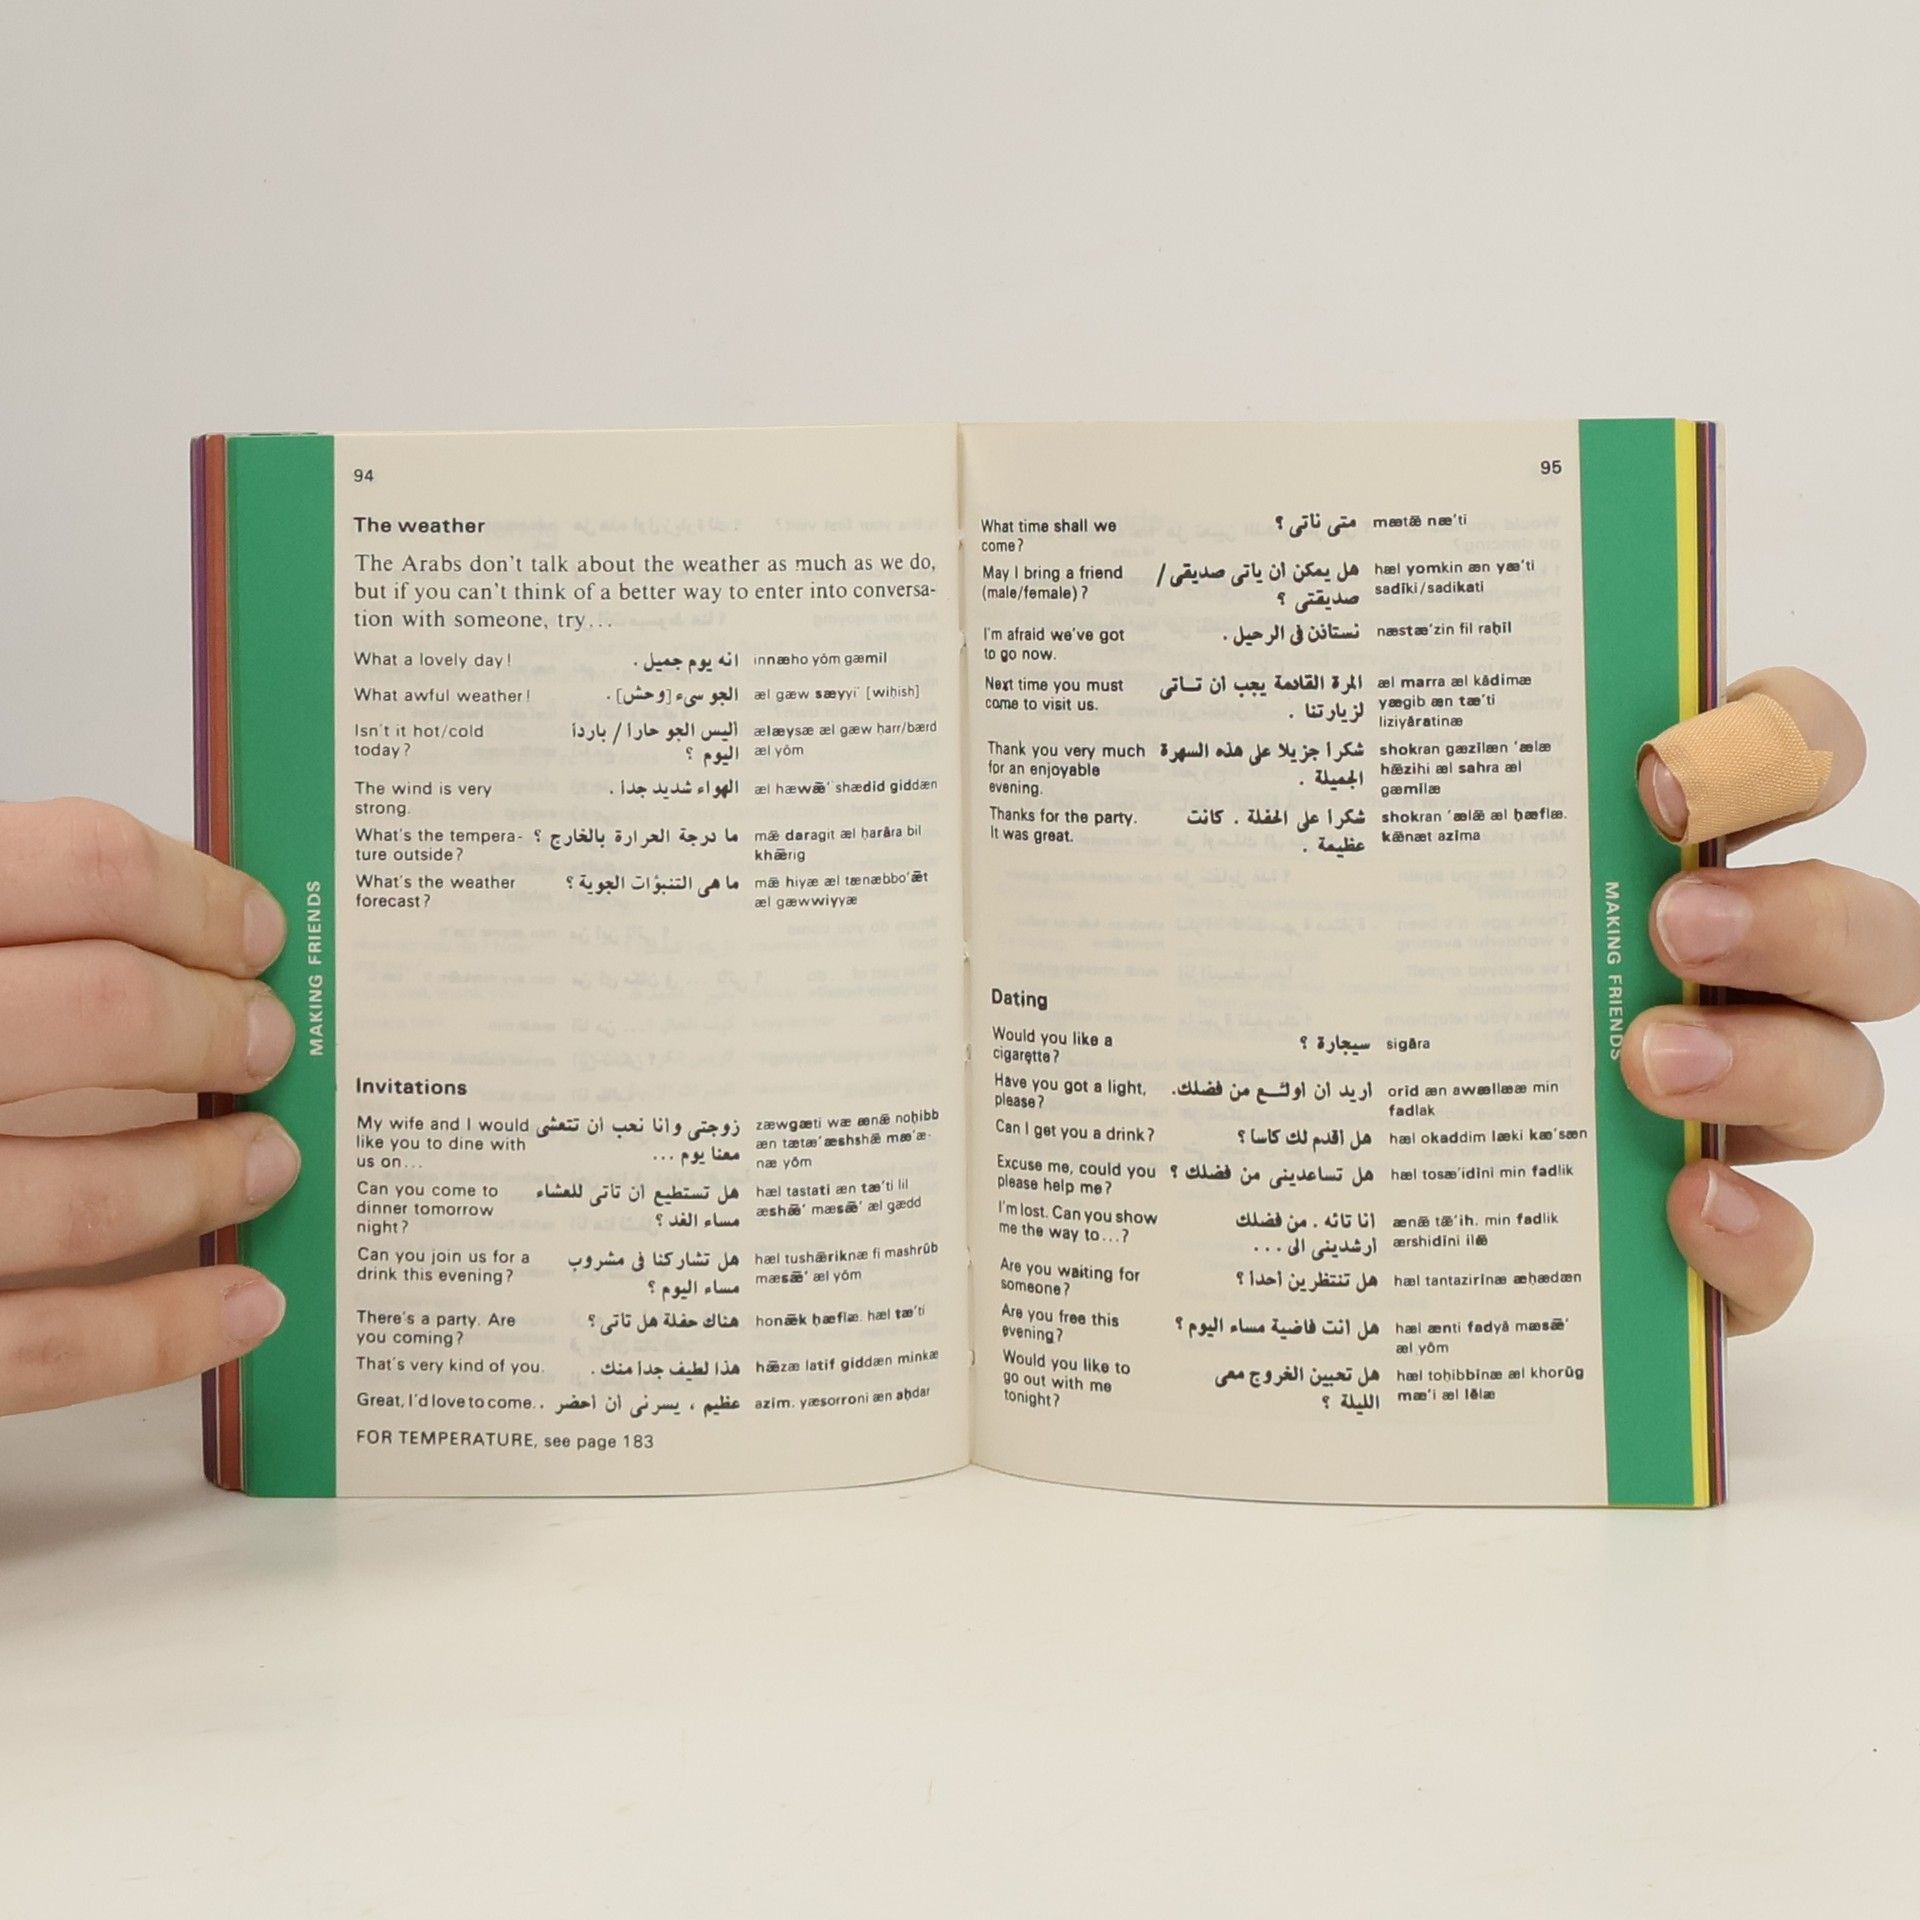 94
The weather
The Arabs don't talk about the weather as much as we do,
but if you can't think of a better way to enter into conversa-
tion with someone, try...
What a lovely day! انه يوم جميل . innæho yôm gæmîl
What awful weather! الجو سىء [وحش] . æl gæw sæyyi' [wiḥish]
Isn't it hot/cold أليس الجو حارا / باردا ælæysæ æl gæw harr/bærd
today? اليوم ؟ æl yôm
The wind is very الهواء شديد جدا . æl hæwǣ' shædîd giddæn
strong.
What's the tempera- ما درجة الحرارة بالخارج ؟ mǣ daragit æl ḥarâra bil
ture outside? khǣrig
What's the weather ما هى التنبؤات الجوية ؟ mǣ hiyæ æl tænæbbo'ǣt
forecast? æl gæwwiyyæ
Invitations
My wife and I would زوجتى وانا نحب ان تتعشى zæwgæti wæ ænǣ noḥibb
like you to dine with معنا يوم ... æn tætæ'æshshǣ mæ'æ-
us on... næ yôm
Can you come to هل تستطيع ان تأتى للعشاء hæl tastati æn tæ'ti lil
dinner tomorrow مساء الغد ؟ æshǣ' mæsǣ' æl gædd
night?
Can you join us for a هل تشاركنا فى مشروب hæl tushǣriknæ fi mashrûb
drink this evening? مساء اليوم ؟ mæsǣ' æl yôm
There's a party. Are هناك حفلة هل تأتى ؟ honǣk ḥæflæ. hæl tæ'ti
you coming?
That's very kind of you. هذا لطيف جدا منك . hǣzæ latîf giddæn minkæ
Great, I'd love to come. عظيم ، يسرنى أن أحضر . azîm. yæsorroni æn aḥdar
FOR TEMPERATURE, see page 183
MAKING FRIENDS
95
What time shall we متى ناتى ؟ mætǣ næ'ti
come?
May I bring a friend هل يمكن ان ياتى صديقى / hæl yomkin æn yæ'ti
(male/female)? صديقتى ؟ sadîki/sadikati
I'm afraid we've got نستاذن فى الرحيل . næstæ'zin fil raḥîl
to go now.
Next time you must المرة القادمة يجب ان تــاتى æl marra æl kâdimæ
come to visit us. لزيارتنا . yægib æn tæ'ti
liziyâratinæ
Thank you very much شكرا جزيلا على هذه السهرة shokran gæzîlæn 'ælæ
for an enjoyable الجميلة . hǣzihi æl sahra æl
evening. gæmîlæ
Thanks for the party. شكرا على الحفلة . كانت shokran 'ælǣ æl ḥæflæ.
It was great. عظيمة . kǣnæt azîma
Dating
Would you like a سيجارة ؟ sigâra
cigarette?
Have you got a light, اريد ان اولــع من فضلك. orîd æn awællææ min
please? fadlak
Can I get you a drink? هل اقدم لك كاسا ؟ hæl okaddim læki kæ'sæn
Excuse me, could you هل تساعدينى من فضلك ؟ hæl tosæ'idîni min fadlik
please help me?
I'm lost. Can you show انا تائه . من فضلك ænǣ tǣ'ih. min fadlik
me the way to...? أرشدينى الى ... ærshidîni ilǣ
Are you waiting for هل تنتظرين أحدا ؟ hæl tantazirînæ æḥædæn
someone?
Are you free this هل انت فاضية مساء اليوم ؟ hæl ænti fadyâ mæsǣ'
evening? æl yôm
Would you like to هل تحبين الخروج معى hæl toḥibbînæ æl khorûg
go out with me الليلة ؟ mæ'i æl lêlæ
tonight?
MAKING FRIENDS